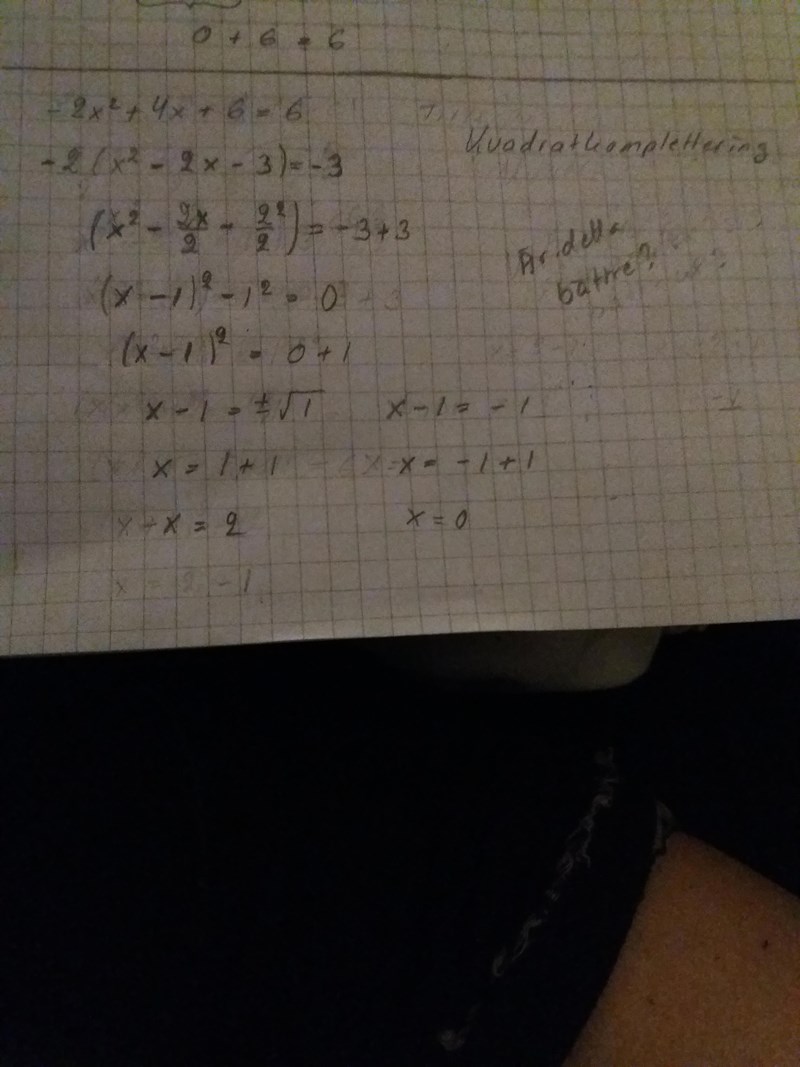 0 + 6 = 6
-2x² + 4x + 6 = 6
Kvadratkomplettering
-2(x² - 2x - 3) = -3
(x² - 2x/2 - 2²/2) = -3+3
Är detta
bättre?
(x - 1)² - 1² = 0
(x - 1)² = 0 + 1
x - 1 = ±√1 x - 1 = -1
x = 1 + 1 x = -1 + 1
x = 2 x = 0